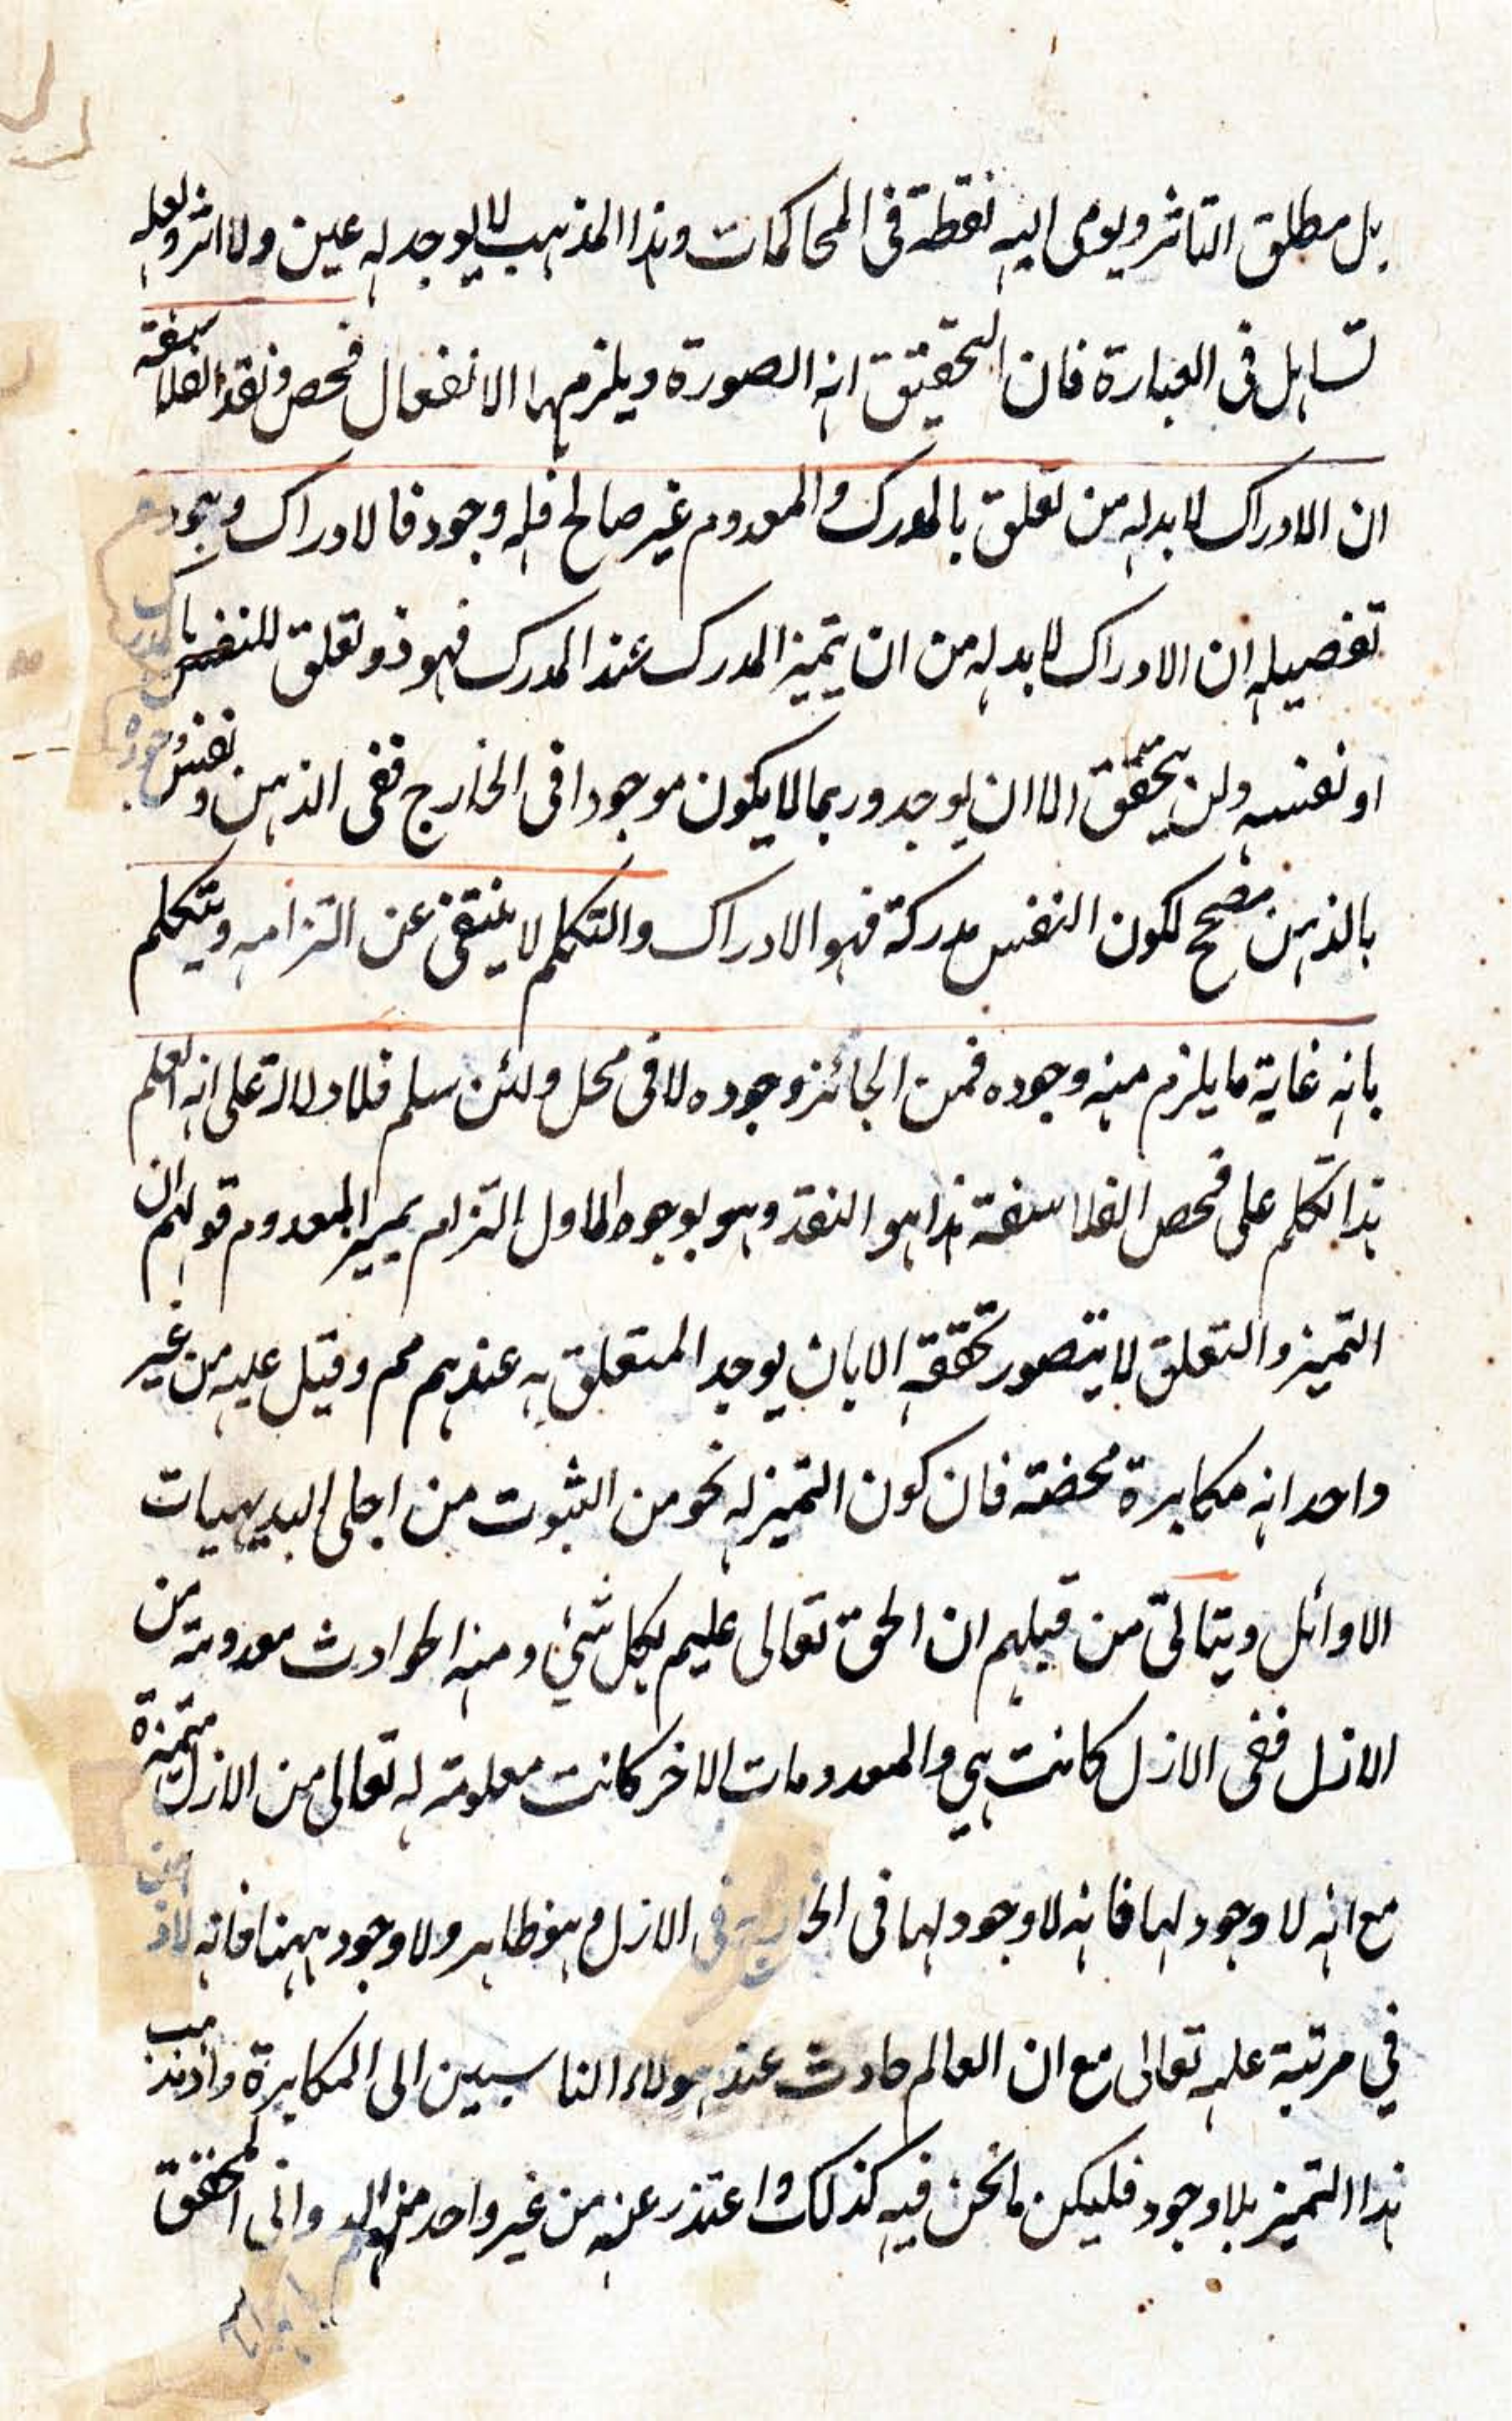 بل مطلق التاثر ويومى اليه نقطة فى المحاكمات وهذا المذهب لا يوجد له عين ولا اثر ولعله
تساهل فى العبارة فان التحقيق انه الصورة ويلزمها الانفعال فحص ونقد الفلاسفة
ان الادراك لا بد له من تعلق بالمدرك والمعدوم غير صالح فله وجود فالادراك وجود
تفصيله ان الادراك لا بد له من ان يتميز المدرك عند المدرك فهو ذو تعلق للنفس با
او نفسه ولن يتحقق الا ان يوجد وربما لا يكون موجودا فى الخارج ففى الذهن ونفس وجوده
بالذهن مصحح لكون النفس مدركة فهو الادراك والتكلم لا ينتقى عن التزامه ويتكلم
بانه غاية ما يلزم منه وجوده فمن الجائز وجوده لا فى محل ولئن سلم فلا دلالة على انه العلم
هذا تكلم على فحص الفلاسفة هذا هو النقد وهو بوجوه الاول التزام تميز المعدوم قولهم ان
التميز والتعلق لا يتصور تحققه الا بان يوجد المتعلق به عندهم مم وقيل عليه من غير
واحد انه مكابرة محضة فان كون التميز له نحو من الثبوت من اجلى البديهيات
الاوائل ويتالق من قبلهم ان الحق تعالى عليم بكل شئ ومنه الحوادث معدومة من
الازل ففى الازل كانت هي والمعدومات الاخر كانت معلومة له تعالى من الازل متميزة
مع انه لا وجود لها فانه لا وجود لها فى الخارج فى الازل وهو ظاهر ولا وجود ههنا فانه لا ذهن
في مرتبة علمه تعالى مع ان العالم حادث عند هولاء الناسبين الى المكابرة واذ
هذا التميز بلا وجود فليكن ما نحن فيه كذلك واعتذر عنه من غير واحد منهم وانى المحقق